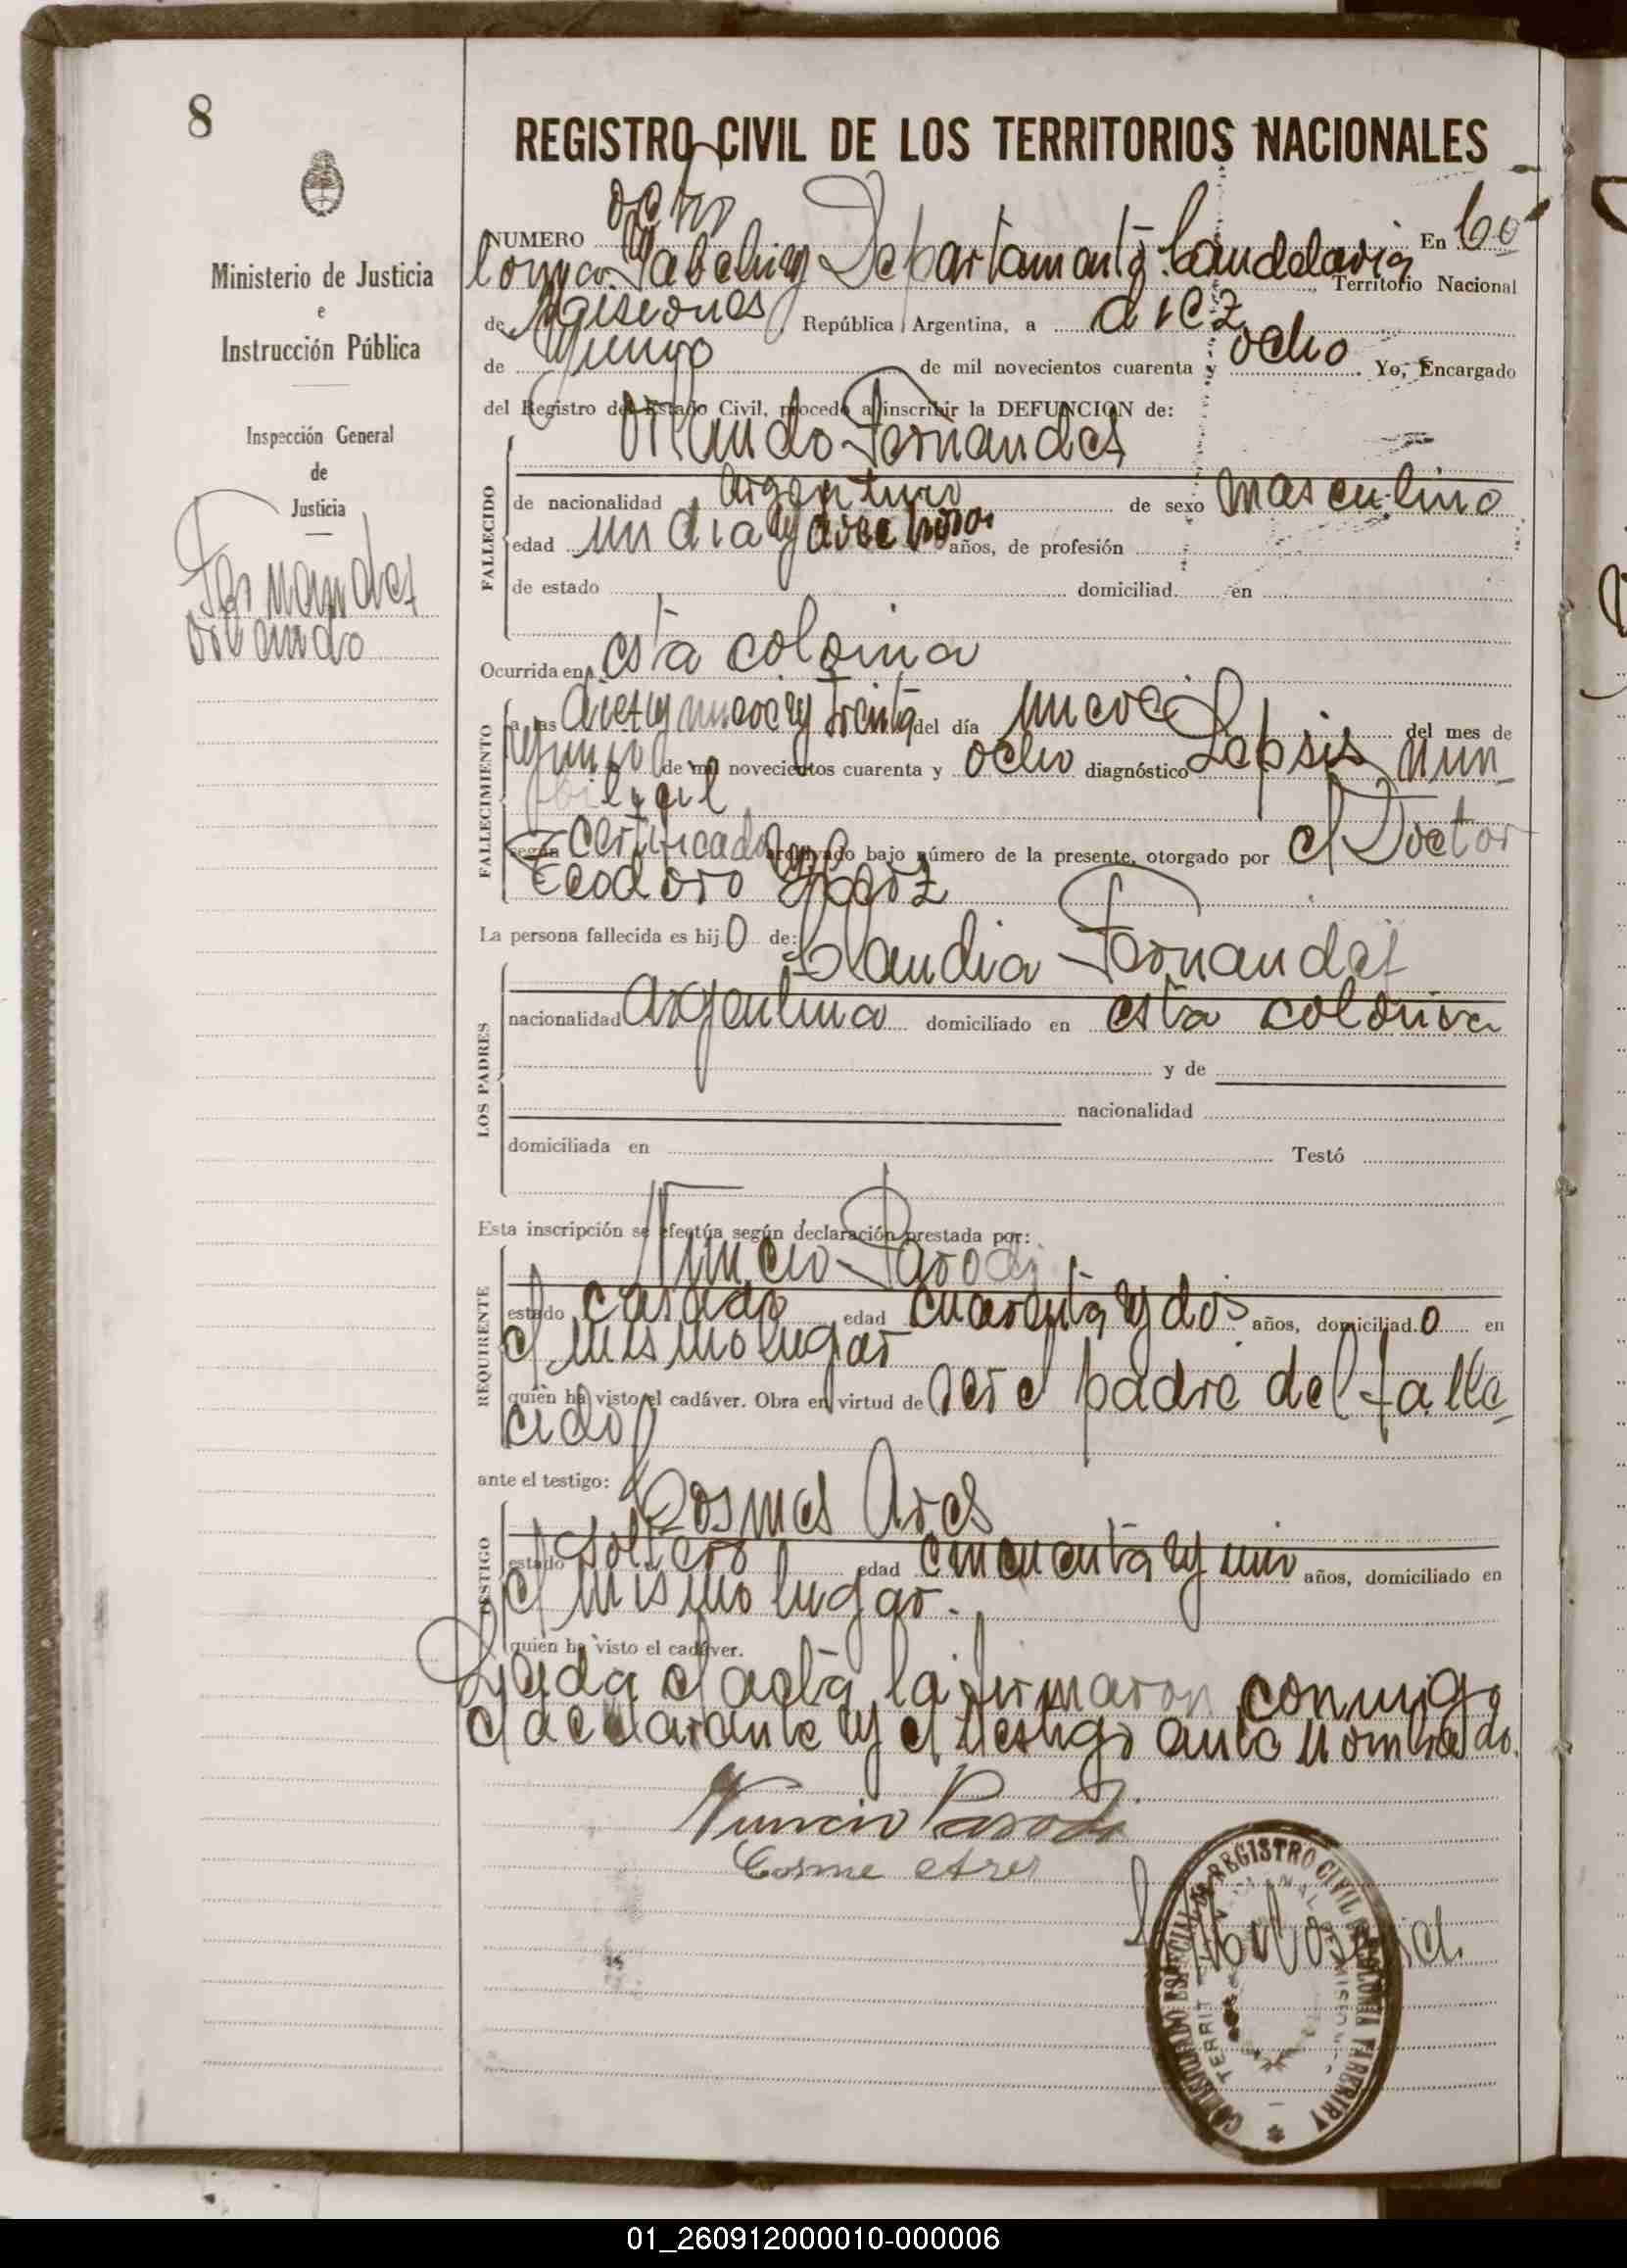 8
Ministerio de Justicia
e
Instrucción Pública
Inspección General
de
Justicia
Fernandez
Orlando
REGISTRO CIVIL DE LOS TERRITORIOS NACIONALES
NUMERO ocho En Co
lonia Departamento Candelaria Territorio Nacional
de Misiones República Argentina, a diez
de Junio de mil novecientos cuarenta y ocho Yo, Encargado
del Registro del Estado Civil, procedo a inscribir la DEFUNCION de:
Orlando Fernandez
FALLECIDO
de nacionalidad argentino de sexo masculino
edad un dia y doce horas años, de profesión
de estado domiciliad en
Ocurrida en esta colonia
FALLECIMIENTO
a las diez y nueve y treinta del día nueve del mes de
Junio de mil novecientos cuarenta y ocho diagnóstico Sepsis
según certificado archivado bajo número de la presente, otorgado por el Doctor
Teodoro
La persona fallecida es hijo de: Claudia Fernandez
LOS PADRES
nacionalidad Argentina domiciliado en esta colonia
y de
nacionalidad
domiciliada en Testó
Esta inscripción se efectúa según declaración prestada por:
Nuncio Parodi
REQUIRENTE
estado casado edad cuarenta y dos años, domiciliad o en
el mismo lugar
quièn ha visto el cadáver. Obra en virtud de ser el padre del falle
cido
ante el testigo: Cosmes Ares
TESTIGO
estado soltero edad cincuenta y uno años, domiciliado en
el mismo lugar.
quièn ha visto el cadáver.
Leyda el acta la firmaron conmigo
el declarante y el testigo ante nombrado.
Nuncio Parodi
Cosme Ares
REGISTRO CIVIL
01_260912000010-000006